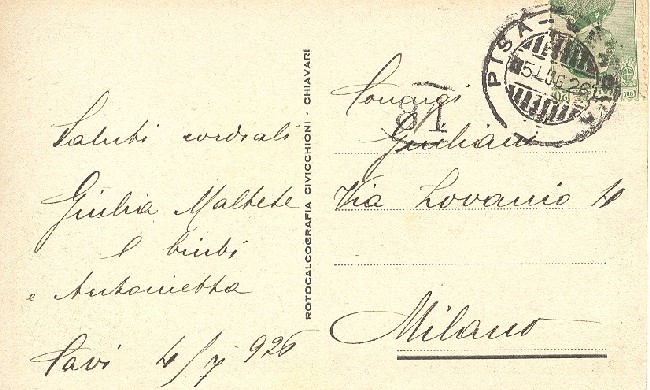 Saluti cordiali
Giulia Maltese
e bimbi
e Antonietta
4/7 926
ROTOCALCOGRAFIA CIVICCHIONI - CHIAVARI
PISA
Giuliani
Via Lovanio 4
Milano